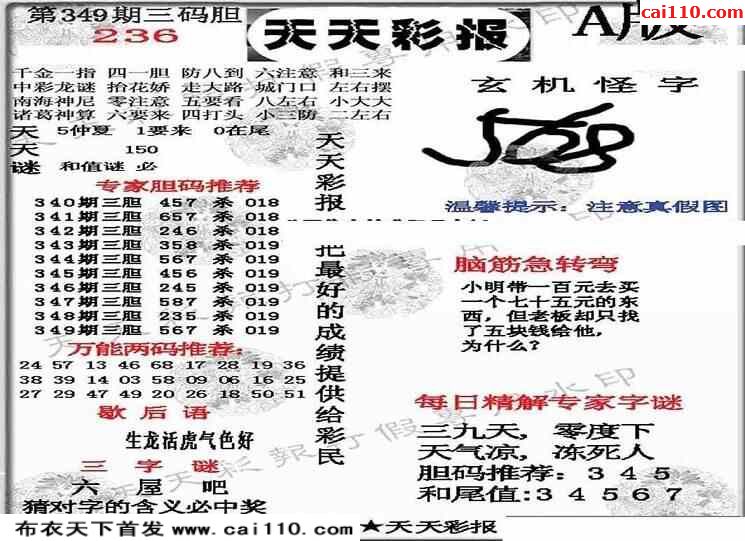 第349期三码胆
236
天天彩报
A版
cai110.com
千金一指 四一胆 防八到 六注意 和三来
中彩龙谜 抬花娇 走大路 城门口 左右摆
南海神尼 零注意 五要看 八左右 小大大
诸葛神算 六要来 四打头 小三防 二左右
天 5仲夏 1要来 0在尾
天 150
谜 和值谜 必
专家胆码推荐
340期三胆 457 杀 018
341期三胆 657 杀 018
342期三胆 246 杀 018
343期三胆 358 杀 019
344期三胆 567 杀 019
345期三胆 456 杀 019
346期三胆 245 杀 019
347期三胆 587 杀 019
348期三胆 235 杀 019
349期三胆 567 杀 019
万能两码推荐:
24 57 13 46 68 17 28 19 36
38 39 14 03 58 09 06 16 25
27 29 47 49 20 26 18 50 51
歇后语
生龙活虎气色好
三字谜
六屋吧
猜对字的含义必中奖
天天彩报
把最好的成绩提供给彩民
玄机怪字
温馨提示: 注意真假图
脑筋急转弯
小明带一百元去买
一个七十五元的东
西,但老板却只找
了五块钱给他,
为什么?
每日精解专家字谜
三九天, 零度下
天气凉, 冻死人
胆码推荐: 3 4 5
和尾值:3 4 5 6 7
布衣天下首发 www.cai110.com ★天天彩报